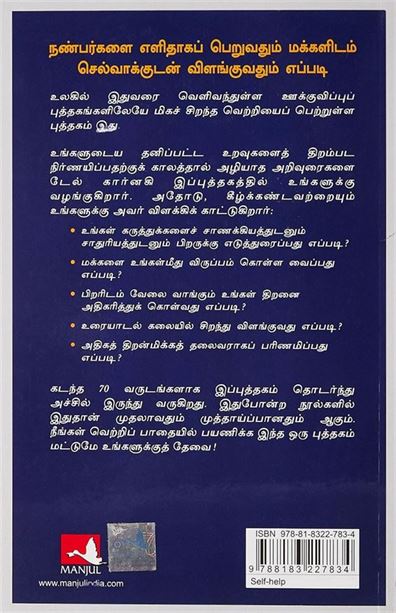 நண்பர்களை எளிதாகப் பெறுவதும் மக்களிடம்
செல்வாக்குடன் விளங்குவதும் எப்படி
உலகில் இதுவரை வெளிவந்துள்ள ஊக்குவிப்புப்
புத்தகங்களிலேயே மிகச் சிறந்த வெற்றியைப் பெற்றுள்ள
புத்தகம் இது.
உங்களுடைய தனிப்பட்ட உறவுகளைத் திறம்பட
நிர்ணயிப்பதற்குக் காலத்தால் அழியாத அறிவுரைகளை
டேல் கார்னகி இப்புத்தகத்தில் உங்களுக்கு
வழங்குகிறார். அதோடு, கீழ்க்கண்டவற்றையும்
உங்களுக்கு அவர் விளக்கிக் காட்டுகிறார்:
• உங்கள் கருத்துக்களைச் சாணக்கியத்துடனும்
சாதுரியத்துடனும் பிறருக்கு எடுத்துரைப்பது எப்படி?
• மக்களை உங்கள்மீது விருப்பம் கொள்ள வைப்பது
எப்படி?
• பிறரிடம் வேலை வாங்கும் உங்கள் திறனை
அதிகரித்துக் கொள்வது எப்படி?
• உரையாடல் கலையில் சிறந்து விளங்குவது எப்படி?
• அதிகத் திறன்மிக்கத் தலைவராகப் பரிணமிப்பது
எப்படி?
கடந்த 70 வருடங்களாக இப்புத்தகம் தொடர்ந்து
அச்சில் இருந்து வருகிறது. இதுபோன்ற நூல்களில்
இதுதான் முதலாவதும் முத்தாய்ப்பானதும் ஆகும்.
நீங்கள் வெற்றிப் பாதையில் பயணிக்க இந்த ஒரு புத்தகம்
மட்டுமே உங்களுக்குத் தேவை!
MANJUL
www.manjulindia.com
ISBN 978-81-8322-783-4
9 788183 227834
Self-help